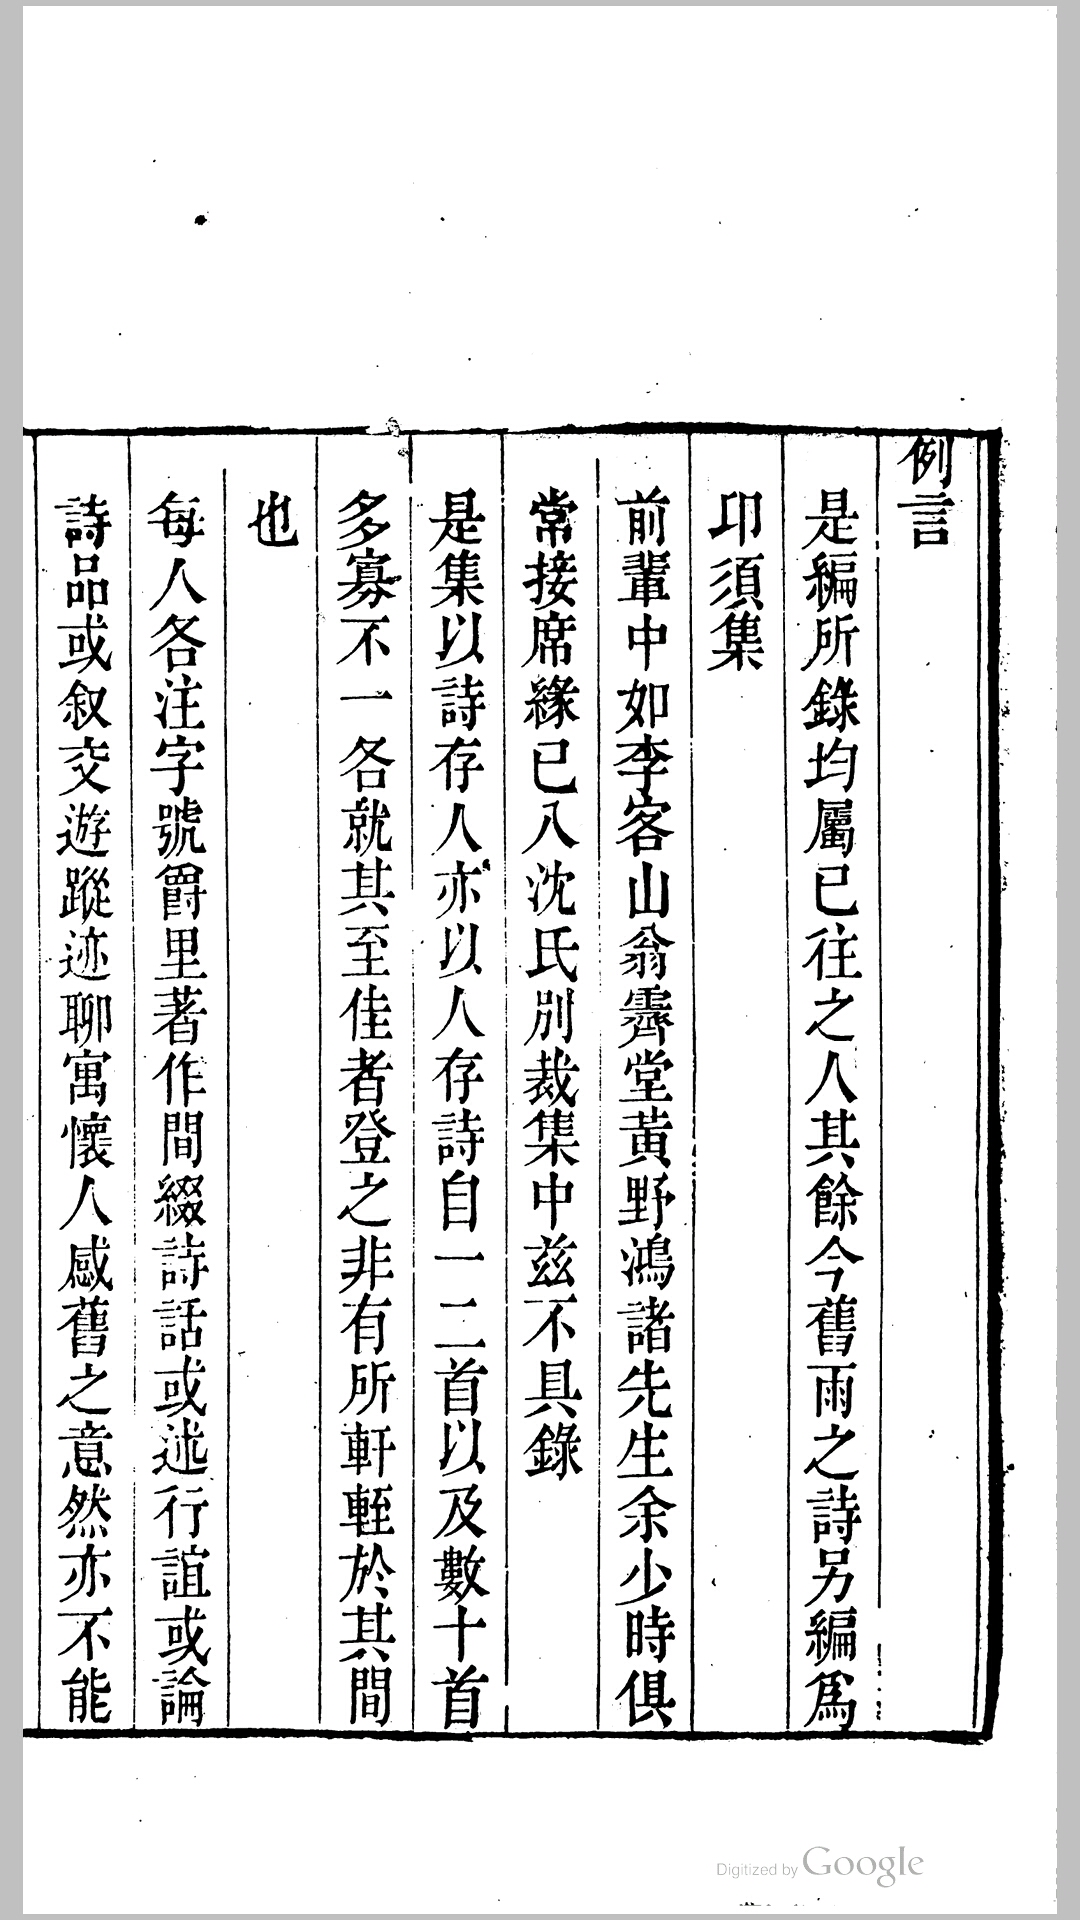 例言
是編所錄均屬已往之人其餘今舊雨之詩另編爲
卬須集
前輩中如李客山翁霽堂黃野鴻諸先生余少時俱
常接席緣已入沈氏別裁集中兹不具錄
是集以詩存人亦以人存詩自一二首以及數十首
多寡不一各就其至佳者登之非有所軒輊於其間
也
每人各注字號爵里著作間綴詩話或述行誼或論
詩品或叙交遊蹤迹聊寓懷人感舊之意然亦不能
Digitized by Google